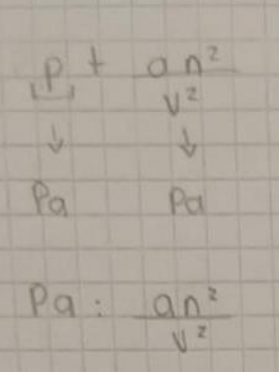 p + an²
v²
↓ ↓
Pa Pa
Pa : an²
v²